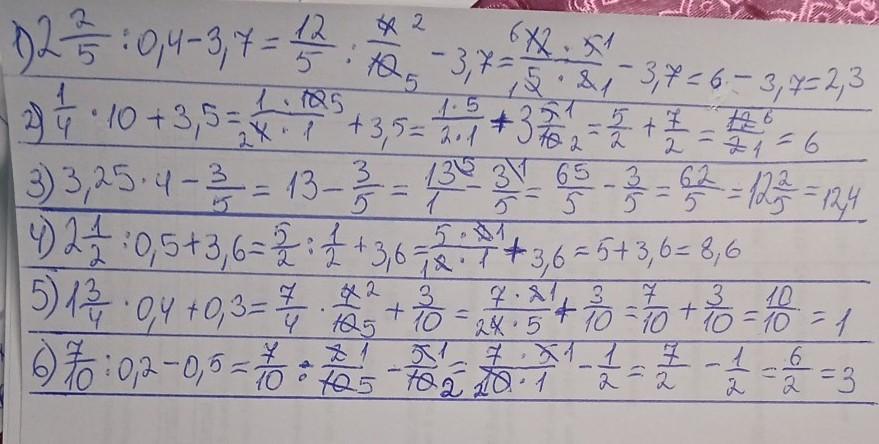 1) 2 2/5 : 0,4 - 3,7 = 12/5 : 4²/10₅ - 3,7 = ⁶12 · 5¹/₁5 · 2₁ - 3,7 = 6 - 3,7 = 2,3
2) 1/4 · 10 + 3,5 = 1 · 10⁵/₂4 · 1 + 3,5 = 1·5/2·1 + 3 5¹/10₂ = 5/2 + 7/2 = 12⁶/2₁ = 6
3) 3,25 · 4 - 3/5 = 13 - 3/5 = 13⁵/1 - 3¹/5 = 65/5 - 3/5 = 62/5 = 12 2/5 = 12,4
4) 2 1/2 : 0,5 + 3,6 = 5/2 : 1/2 + 3,6 = 5 · 2¹/₁2 · 1 + 3,6 = 5 + 3,6 = 8,6
5) 1 3/4 · 0,4 + 0,3 = 7/4 · 4²/10₅ + 3/10 = 7 · 2¹/₂4 · 5 + 3/10 = 7/10 + 3/10 = 10/10 = 1
6) 7/10 : 0,2 - 0,5 = 7/10 : 2¹/10₅ - 5¹/10₂ = 7 · 5¹/₂10 · 1 - 1/2 = 7/2 - 1/2 = 6/2 = 3